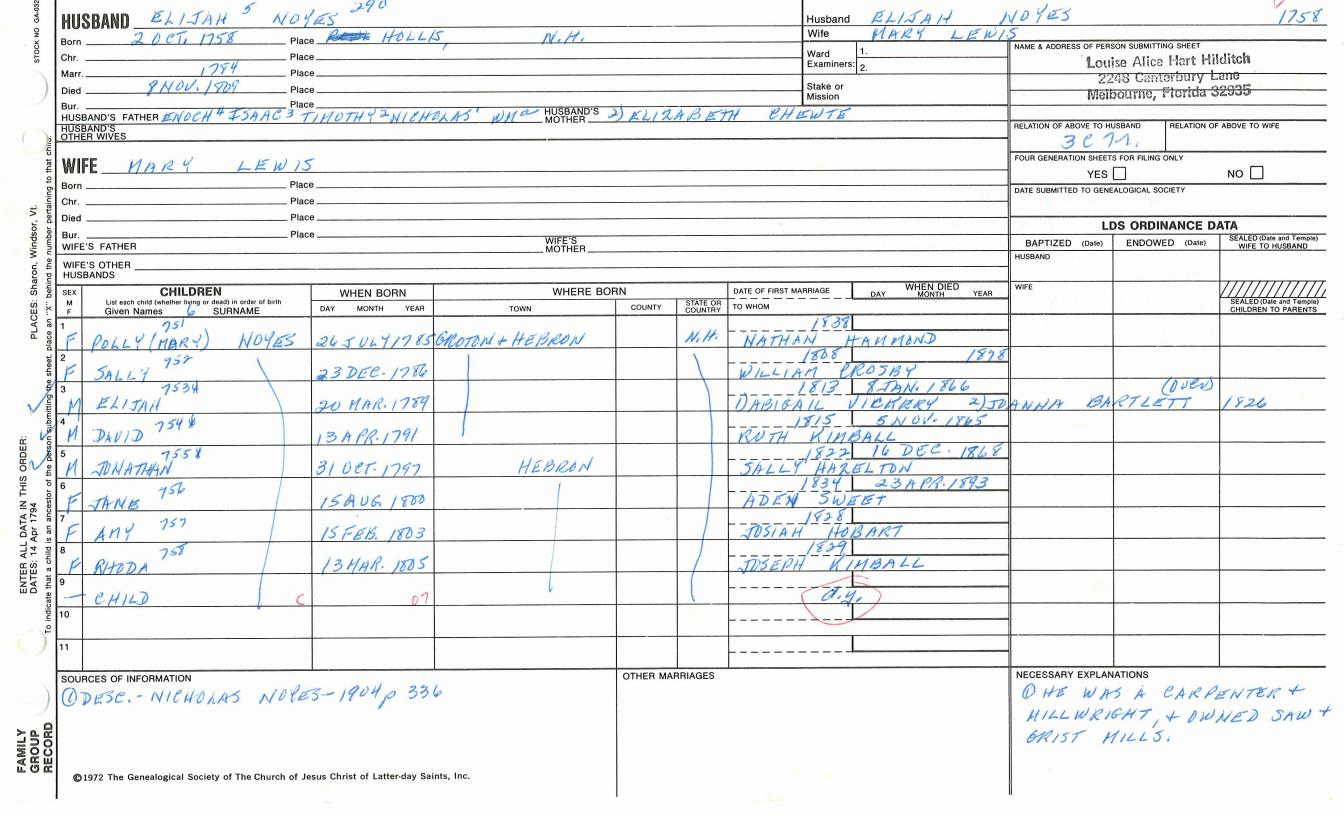 STOCK NO. GA-032
HUSBAND ELIJAH 5 NOYES 290
Born 2 OCT. 1758 Place HOLLIS, N.H.
Chr. Place
Marr. 1784 Place
Died 8 NOV. 1809 Place
Bur. Place
HUSBAND'S FATHER ENOCH 4 ISAAC 3 TIMOTHY 2 NICHOLAS 1 WM a HUSBAND'S MOTHER 2) ELIZABETH CHEWTE
HUSBAND'S OTHER WIVES
WIFE MARY LEWIS
Born Place
Chr. Place
Died Place
Bur. Place
WIFE'S FATHER WIFE'S MOTHER
WIFE'S OTHER HUSBANDS
Husband ELIJAH NOYES 1758
Wife MARY LEWIS
Ward Examiners: 1. 2.
Stake or Mission
NAME & ADDRESS OF PERSON SUBMITTING SHEET
Louise Alice Hart Hilditch
2248 Canterbury Lane
Melbourne, Florida 32935
RELATION OF ABOVE TO HUSBAND RELATION OF ABOVE TO WIFE
3C
FOUR GENERATION SHEETS FOR FILING ONLY
YES NO
DATE SUBMITTED TO GENEALOGICAL SOCIETY
LDS ORDINANCE DATA
BAPTIZED (Date) ENDOWED (Date) SEALED (Date and Temple) WIFE TO HUSBAND
HUSBAND
WIFE
SEALED (Date and Temple) CHILDREN TO PARENTS
SEX M F CHILDREN WHEN BORN WHERE BORN DATE OF FIRST MARRIAGE WHEN DIED
List each child (whether living or dead) in order of birth
Given Names 6 SURNAME DAY MONTH YEAR TOWN COUNTY STATE OR COUNTRY TO WHOM DAY MONTH YEAR
1 751 1838
F POLLY (MARY) NOYES 26 JULY 1785 GROTON + HEBRON N.H. NATHAN HAMMOND
2 752 1808 1878
F SALLY 23 DEC. 1786 WILLIAM CROSBY
3 753X 1813 8 JAN. 1866 (OVER)
M ELIJAH 20 MAR. 1789 1) ABIGAIL VICKERY 2) JOANNA BARTLETT 1826
4 754X 1815 5 NOV. 1865
M DAVID 13 APR. 1791 RUTH KIMBALL
5 755X 1822 16 DEC. 1868
M JONATHAN 31 OCT. 1797 HEBRON SALLY HAZELTON
6 756 1834 23 APR. 1893
F JANE 15 AUG 1800 ADEN SWEET
7 757 1828
F AMY 15 FEB. 1803 JOSIAH HOBART
8 758 1829
F RHODA 13 MAR. 1805 JOSEPH KIMBALL
9
— CHILD C 07 d.y.
10
11
SOURCES OF INFORMATION
① DESC. - NICHOLAS NOYES - 1904 p 336
OTHER MARRIAGES
NECESSARY EXPLANATIONS
① HE WAS A CARPENTER +
MILLWRIGHT, + OWNED SAW +
GRIST MILLS.
©1972 The Genealogical Society of The Church of Jesus Christ of Latter-day Saints, Inc.
ENTER ALL DATA IN THIS ORDER:
DATES: 14 Apr 1794
PLACES: Sharon, Windsor, Vt.
To indicate that a child is an ancestor of the person submitting the sheet, place an "X" behind the number pertaining to that child.
FAMILY GROUP RECORD